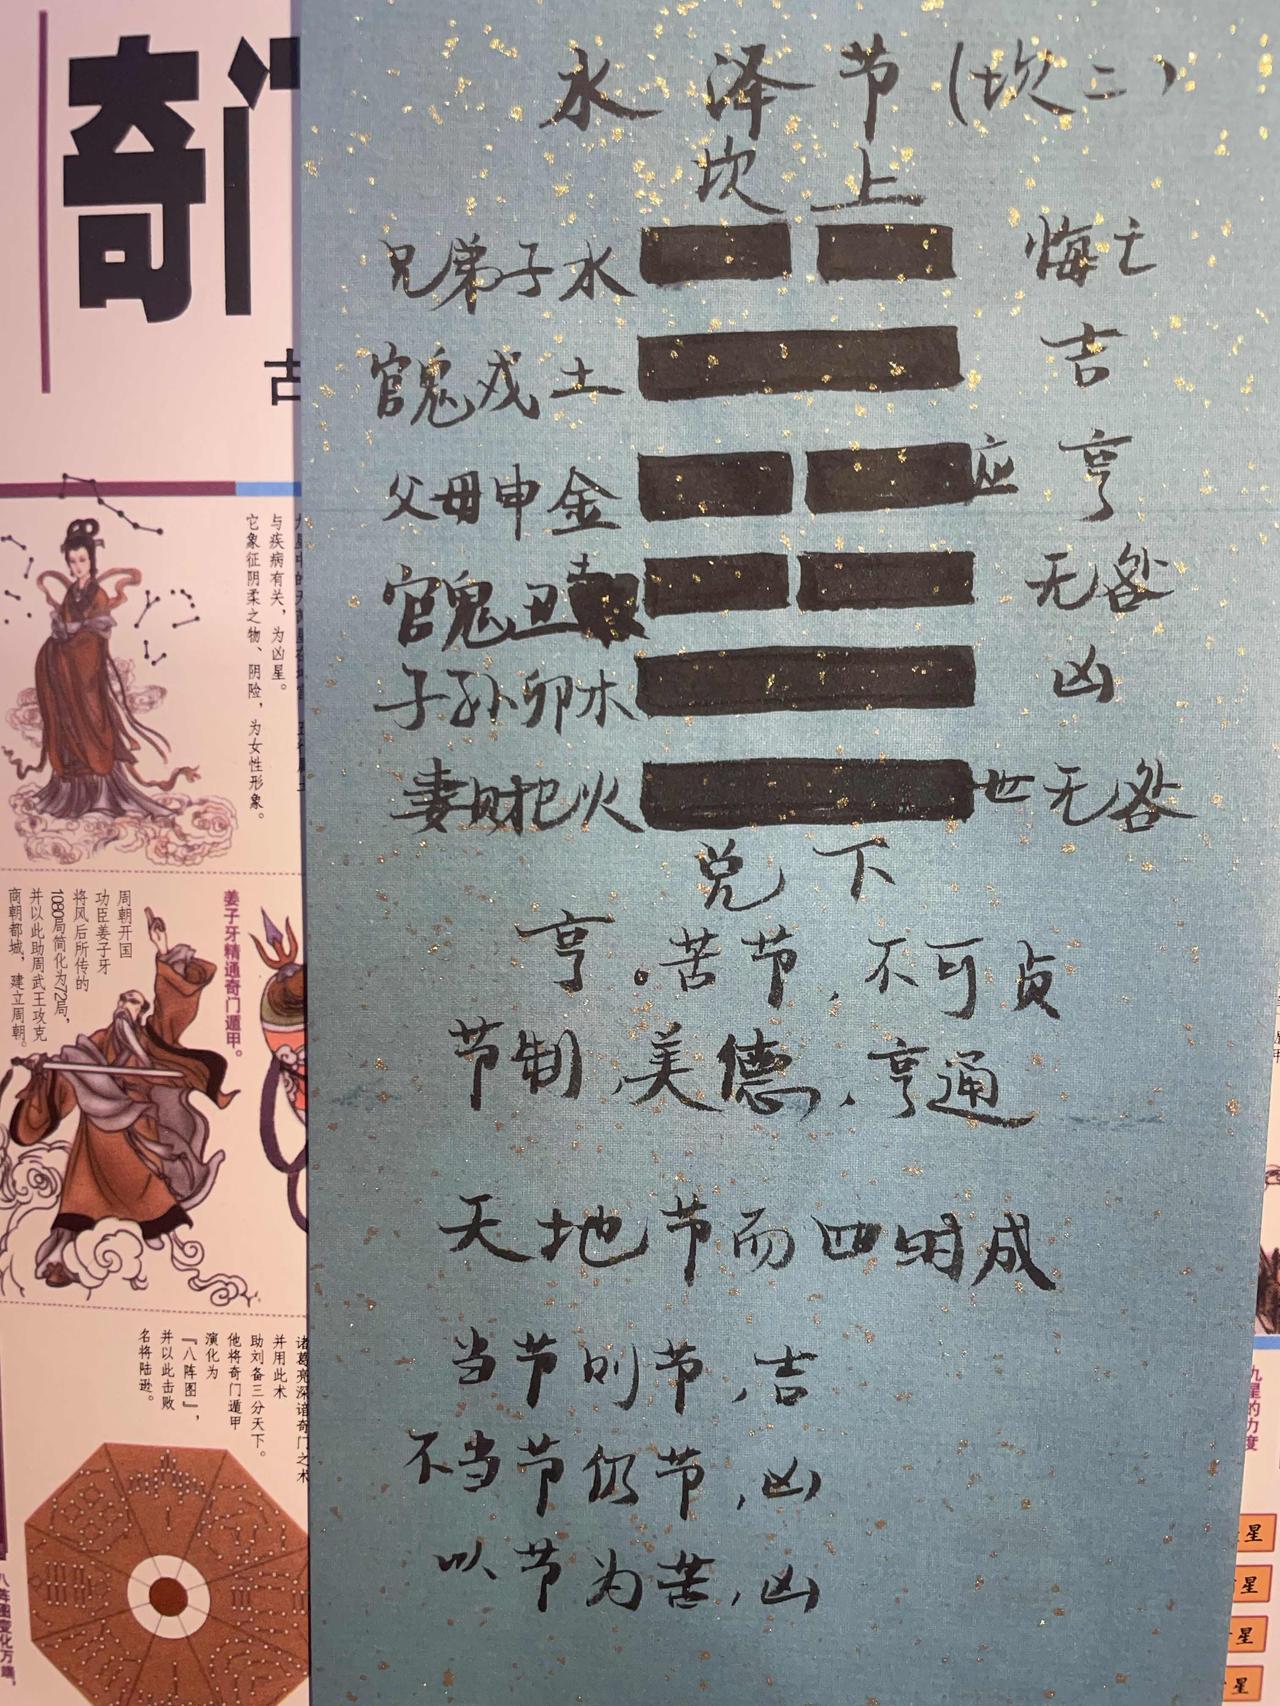 奇门
古
与疾病有关，为凶星。
它象征阴柔之物、阴险，为女性形象。
姜子牙精通奇门遁甲。
周朝开国
功臣姜子牙
将风后所传的
1080局简化为72局，
并以此助周武王攻克
商朝都城，建立周朝。
诸葛亮深谙奇门之术
并用此术
助刘备三分天下。
他将奇门遁甲
演化为
『八阵图』，
并以此击败
名将陆逊。
八阵图变化万端，
水泽节(坎二)
坎 上
兄弟子水 悔亡
官鬼戌土 吉
父母申金 应 亨
官鬼丑土 无咎
子孙卯木 凶
妻财巳火 世 无咎
兑 下
亨。苦节，不可贞
节制，美德，亨通
天地节而四时成
当节则节，吉
不当节仍节，凶
以节为苦，凶
九星的力度
星
星
星
星